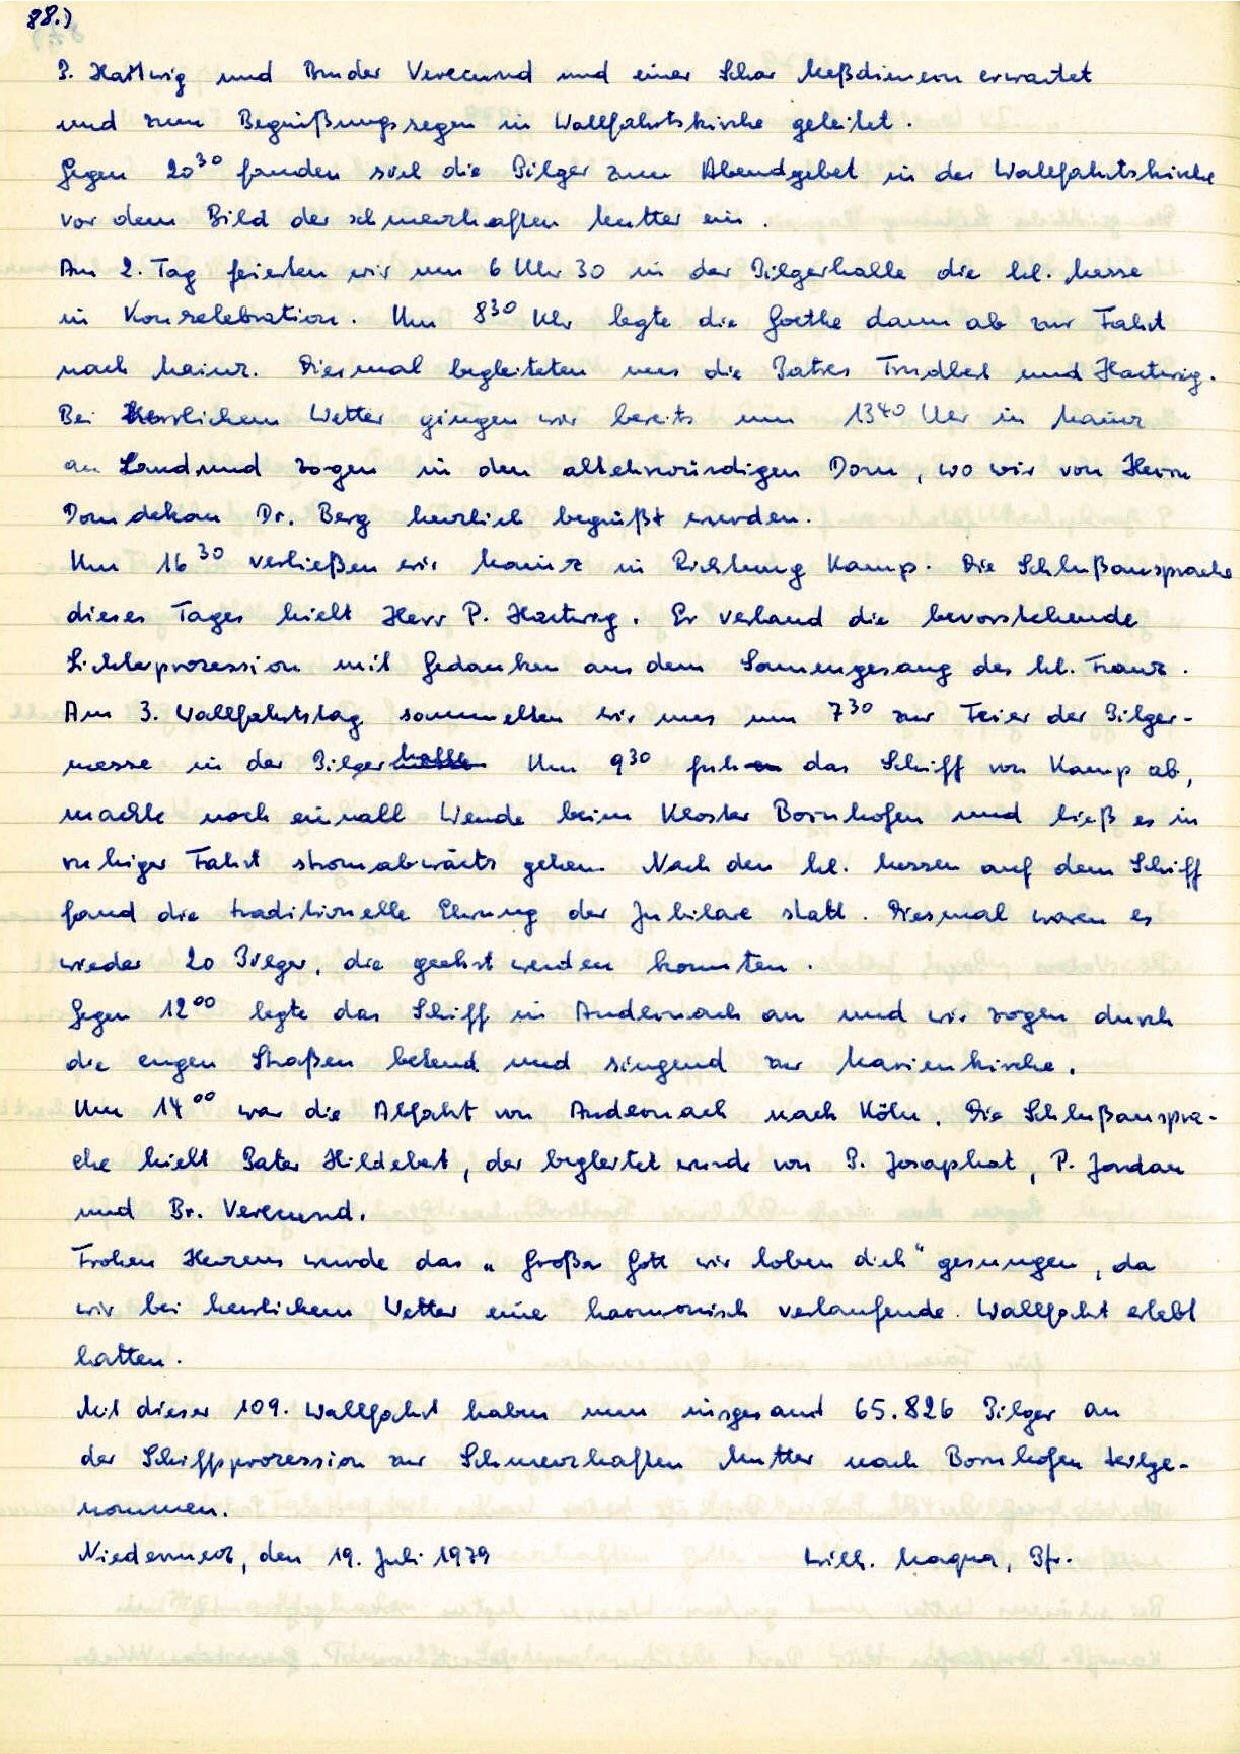 88.)
P. Hartwig und Bruder Verecund und einer Schar Meßdienern erwartet
und zum Begrüßungssegen in Wallfahrtskirche geleitet.
Gegen 20³⁰ fanden sich die Pilger zum Abendgebet in der Wallfahrtskirche
vor dem Bild der schmerzhaften Mutter ein.
Am 2. Tag feierten wir um 6 Uhr 30 in der Pilgerhalle die hl. Messe
in Konzelebration. Um 8³⁰ Uhr legte die Goethe dann ab zur Fahrt
nach Mainz. Diesmal begleiteten uns die Patres Trudbert und Hartwig.
Bei herrlichem Wetter gingen wir bereits um 13⁴⁰ Uhr in Mainz
an Land und zogen in den altehrwürdigen Dom, wo wir von Herrn
Domdekan Dr. Berg herzlich begrüßt wurden.
Um 16³⁰ verließen wir Mainz in Richtung Kamp. Die Schlußansprache
dieses Tages hielt Herr P. Hartwig. Er verband die bevorstehende
Lichterprozession mit Gedanken aus dem Sonnengesang des hl. Franz.
Am 3. Wallfahrtstag sammelten wir uns um 7³⁰ zur Feier der Pilger-
messe in der Pilgerhalle Um 9³⁰ fuhr das Schiff von Kamp ab,
machte noch einmall Wende beim Kloster Bornhofen und ließ es in
ruhiger Fahrt stromabwärts gehen. Nach den hl. Messen auf dem Schiff
fand die traditionelle Ehrung der Jubilare statt. Diesmal waren es
wieder 20 Pilger, die geehrt werden konnten.
Gegen 12⁰⁰ legte das Schiff in Andernach an und wir zogen durch
die engen Straßen betend und singend zur Marienkirche.
Um 14⁰⁰ war die Abfahrt von Andernach nach Köln. Die Schlußanspra-
che hielt Pater Hildebert, der begleitet wurde von P. Josaphat, P. Jordan
und Br. Verecund.
Frohen Herzens wurde das „Großer Gott wir loben dich" gesungen, da
wir bei herrlichem Wetter eine harmonisch verlaufende Wallfahrt erlebt
hatten.
Mit dieser 109. Wallfahrt haben nun insgesamt 65.826 Pilger an
der Schiffsprozession zur Schmerzhaften Mutter nach Bornhofen teilge-
nommen.
Niedermerz, den 19. Juli 1979 Wilh. Maqua, Pfr.